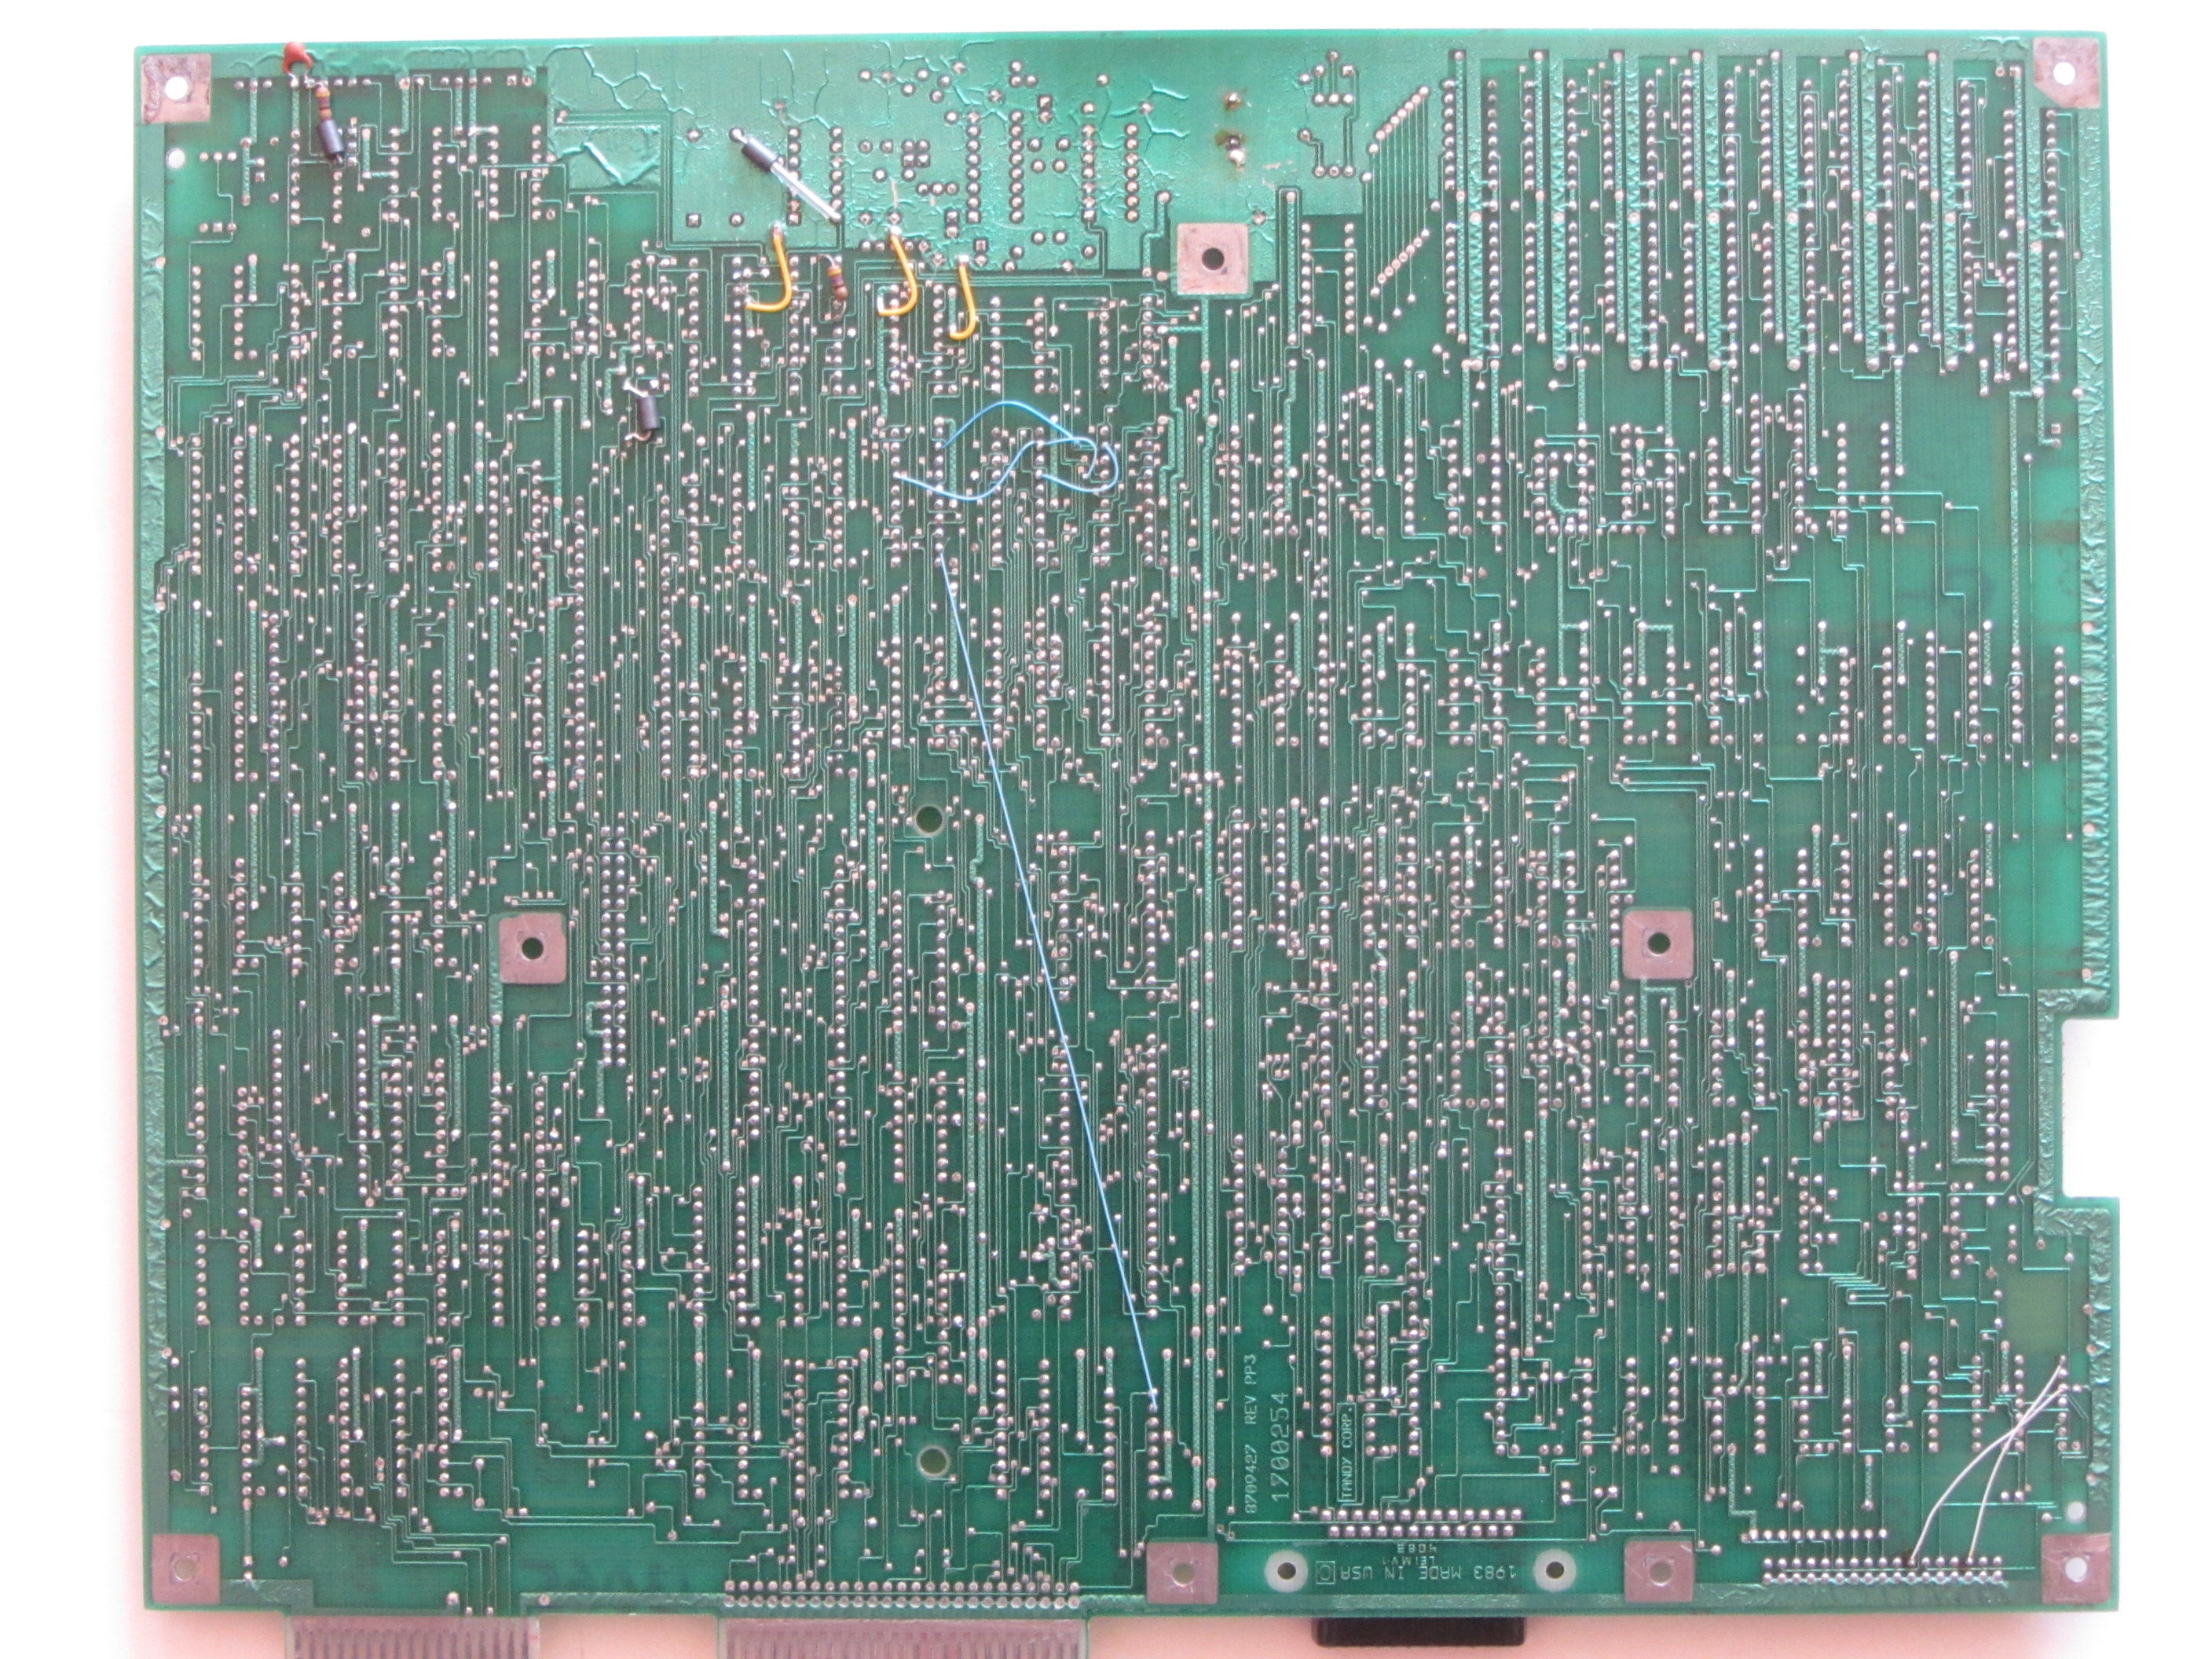 8709427 REV PP3
1700254
TANDY CORP.
1983 MADE IN USA
LEIMV-1